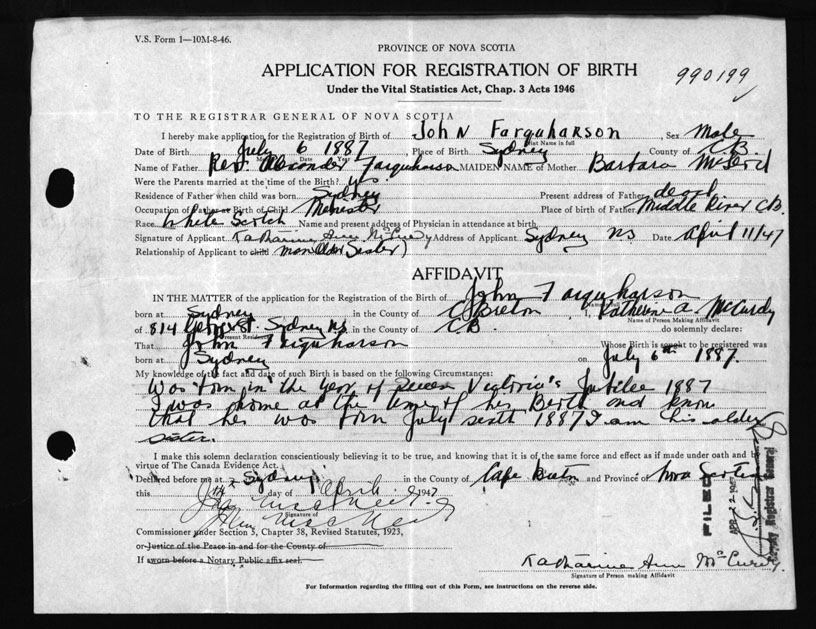 V.S. Form 1—10M-8-46.
PROVINCE OF NOVA SCOTIA
APPLICATION FOR REGISTRATION OF BIRTH
990199
Under the Vital Statistics Act, Chap. 3 Acts 1946
TO THE REGISTRAR GENERAL OF NOVA SCOTIA
I hereby make application for the Registration of Birth of John Farquharson, Sex Male
Print Name in full
Date of Birth July 6 1887, Place of Birth Sydney County of C.B.
Month Date Year
Name of Father Rev. Alexander Farquharson MAIDEN NAME of Mother Barbara McLeod
Were the Parents married at the time of the Birth? yes.
Residence of Father when child was born Sydney Present address of Father dead
Occupation of Father or Birth of Child Menester Place of birth of Father Middle River C.B.
Race White Scotch Name and present address of Physician in attendance at birth
Signature of Applicant Katharine Ann McCurdy Address of Applicant Sydney N.S Date April 11/47
Relationship of Applicant to child man (older Sester)
AFFIDAVIT
IN THE MATTER of the application for the Registration of the Birth of John Farquharson
born at Sydney in the County of C Breton I, Katherine A. McCurdy
Name of Person Making Affidavit
of 814 George St. Sydney NS in the County of C B. do solemnly declare:
Present Residence
That John Farquharson Whose Birth is sought to be registered was
born at Sydney on July 6th 1887.
My knowledge of the fact and date of such Birth is based on the following Circumstances:
Was born in the year of Queen Victoria's Jubilee 1887
I was home at the time of his Berth and know
that he was born July sixth 1887 I am his older
sister.
I make this solemn declaration conscientiously believing it to be true, and knowing that it is of the same force and effect as if made under oath and by
virtue of The Canada Evidence Act.
Declared before me at Sydney in the County of Cape Breton and Province of Nova Scotia
this day of April 1947
Signature of
Commissioner under Section 5, Chapter 38, Revised Statutes, 1923,
or Justice of the Peace in and for the County of
If sworn before a Notary Public affix seal.
Katharine Ann McCurdy.
Signature of Person making Affidavit
For Information regarding the filling out of this Form, see instructions on the reverse side.
FILED
APR 1947
Deputy Registrar General